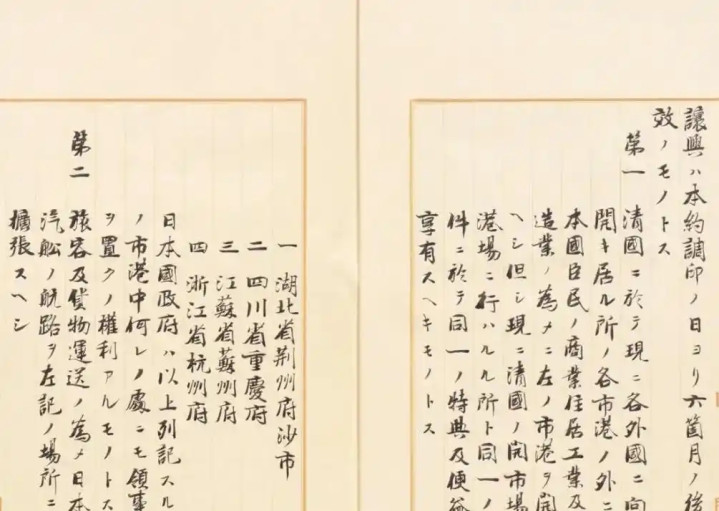 讓與ハ本約調印ノ日ヨリ六箇月ノ後
效ノモノトス
第一
清國ニ於テ現ニ各外國ニ向
開キ居ル所ノ各市港ノ外ニ
本國臣民ノ商業住居工業及
造業ノ為メニ左ノ市港ヲ開
ヘシ但シ現ニ清國ノ開市場
港場ニ行ハルル所ト同一ノ
件ニ於テ同一ノ特典及便益
享有スヘキモノトス
一 湖北省荊州府沙市
二 四川省重慶府
三 江蘇省蘇州府
四 浙江省杭州府
日本國政府ハ以上列記スル
ノ市港中何レノ處ニモ領事
ヲ置クノ權利アルモノトス
第二
旅客及貨物運送ノ為メ日本
汽船ノ航路ヲ左記ノ場所ニ
擴張スヘシ